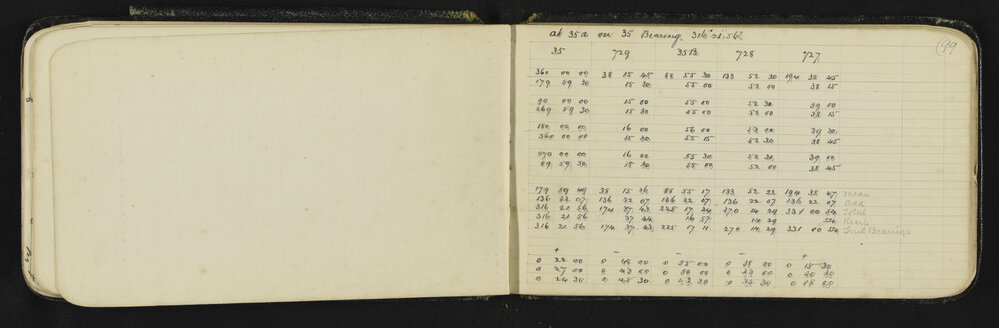 at 35a on 35 Bearing 316° 21' 56"
99
35 729 35B 728 727
360 00 00 38 15 45 88 55 30 133 52 30 194 38 45
179 59 30 15 30 55 00 52 00 38 15
90 00 00 15 00 55 00 52 30 39 00
269 59 30 15 30 55 00 52 00 38 15
180 00 00 16 00 56 00 53 00 39 30
360 00 00 15 30 55 15 52 30 38 45
270 00 00 16 00 55 30 52 30 39 00
89 59 30 15 30 55 00 52 00 38 45
179 59 49 38 15 36 88 55 17 133 52 22 194 38 47 Mean
136 22 07 136 22 07 136 22 07 136 22 07 136 22 07 add
316 21 56 174 37 43 225 17 24 270 14 29 331 00 54 Total
316 21 56 37 44 16 57 14 29 54
316 21 56 174 37 43 225 17 11 270 14 29 331 00 54 True Bearings
+ − − − +
0 22 00 0 48 00 0 55 00 0 38 00 0 15 30
0 27 00 0 43 00 0 50 00 0 33 00 0 20 30
0 24 30 0 45 30 0 52 30 0 35 30 0 18 00